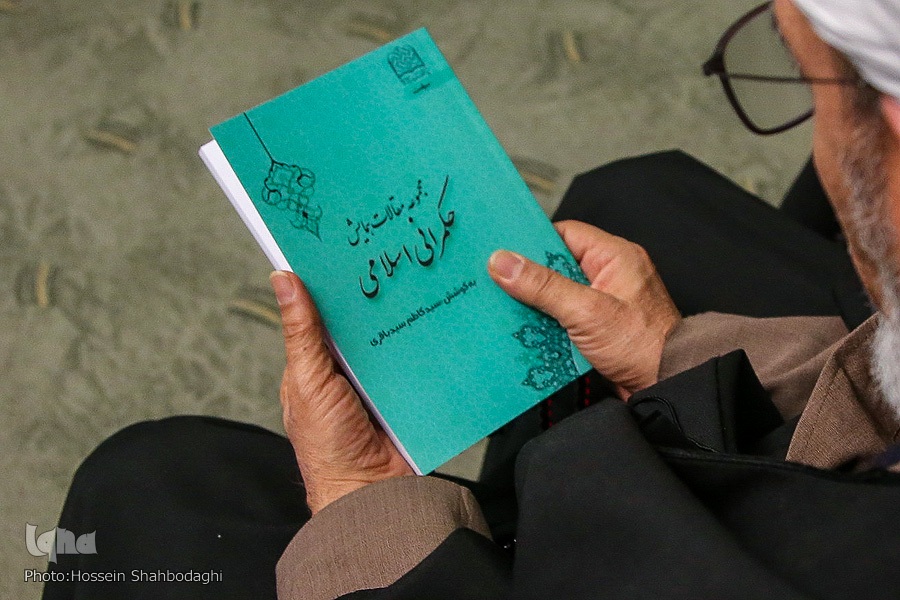 مجموعه مقالات همایش
حکمرانی اسلامی
به کوشش: سید کاظم سیدباقری
iqna
Photo:Hossein Shahbodaghi